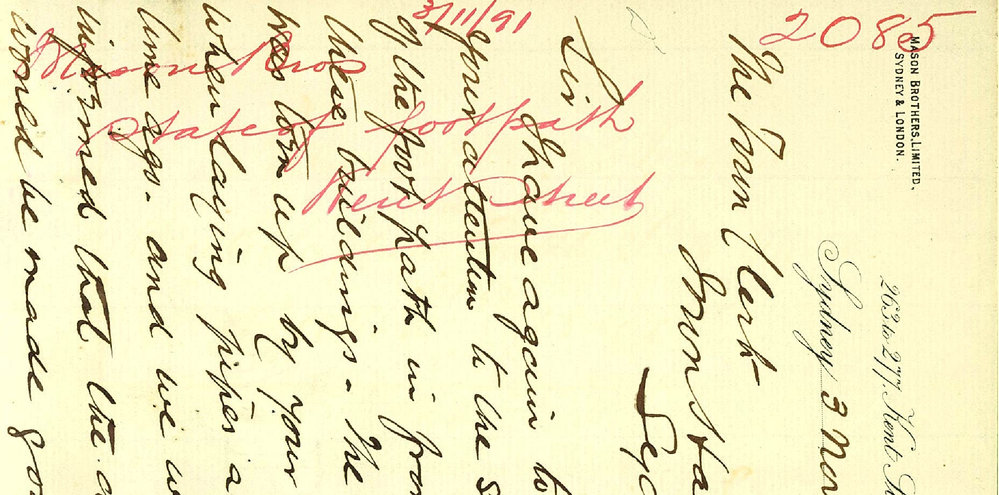 2085
3/11/91
Mason Bros
State of footpath
Kent Street
MASON BROTHERS, LIMITED.
SYDNEY & LONDON.
263 to 277, Kent St
Sydney 3 Nov
The Town Clerk
Town Ha
Syd
Sir
I have again to
your attention to the s
of the footpath in fron
these buildings. The
was torn up by your
when laying pipes a
time ago. and we w
informed that the a
would be made goo